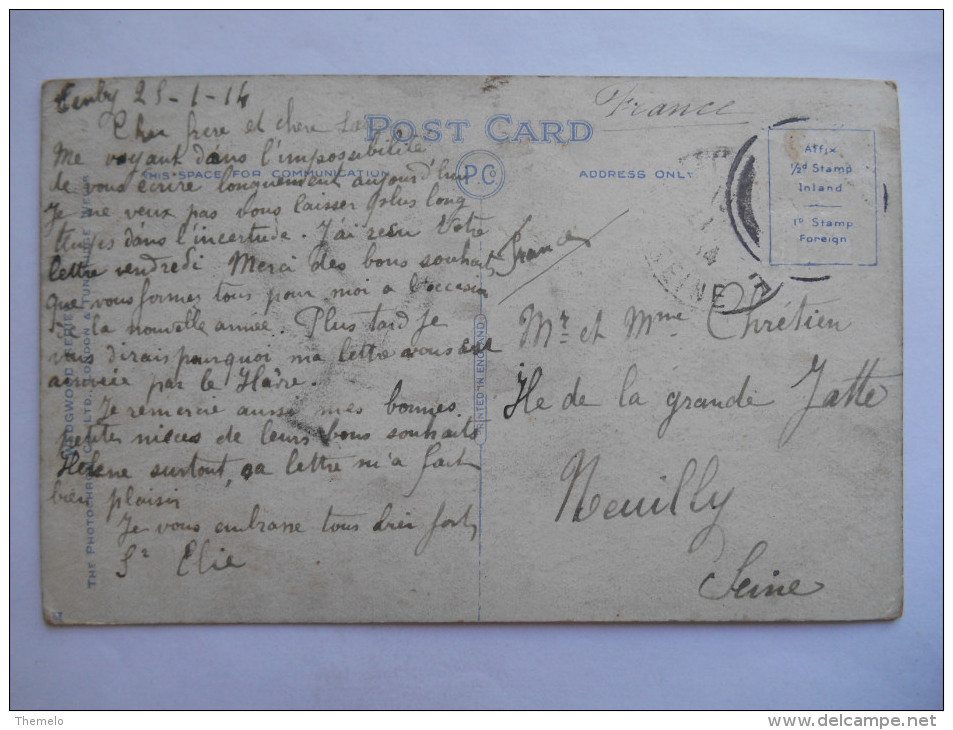 Tenby 25-1-14
Cher frere et chere
Me voyant dans l'impossibilité
de vous écrire longuement aujourd'hui
Je ne veux pas vous laisser plus long
temps dans l'incertude. J'ai reçu Votre
lettre vendredi Merci des bons souhaits
que vous formez tous pour moi a l'occasion
de la nouvelle année. Plus tard Je
vous dirais pourquoi ma lettre vous est
arrivée par le Hâvre.
Je remercie aussi mes bonnes
petites nieces de leurs bons souhaits
Helene surtout, sa lettre m'a fait
bien plaisir
Je vous embrasse tous bien fort
Sr Elie
POST CARD
THIS SPACE FOR COMMUNICATION
P.C.
ADDRESS ONLY
France
Affix
½d Stamp
Inland
1d Stamp
Foreign
14
SEINE
France
Mr et Mme Chrétien
Île de la grande Jatte
Neuilly
Seine
PRINTED IN ENGLAND
WEDGWOOD SERIES
THE PHOTOCHROM CO. LTD., LONDON & TUNBRIDGE WELLS
Themelo
http://www.delcampe.net